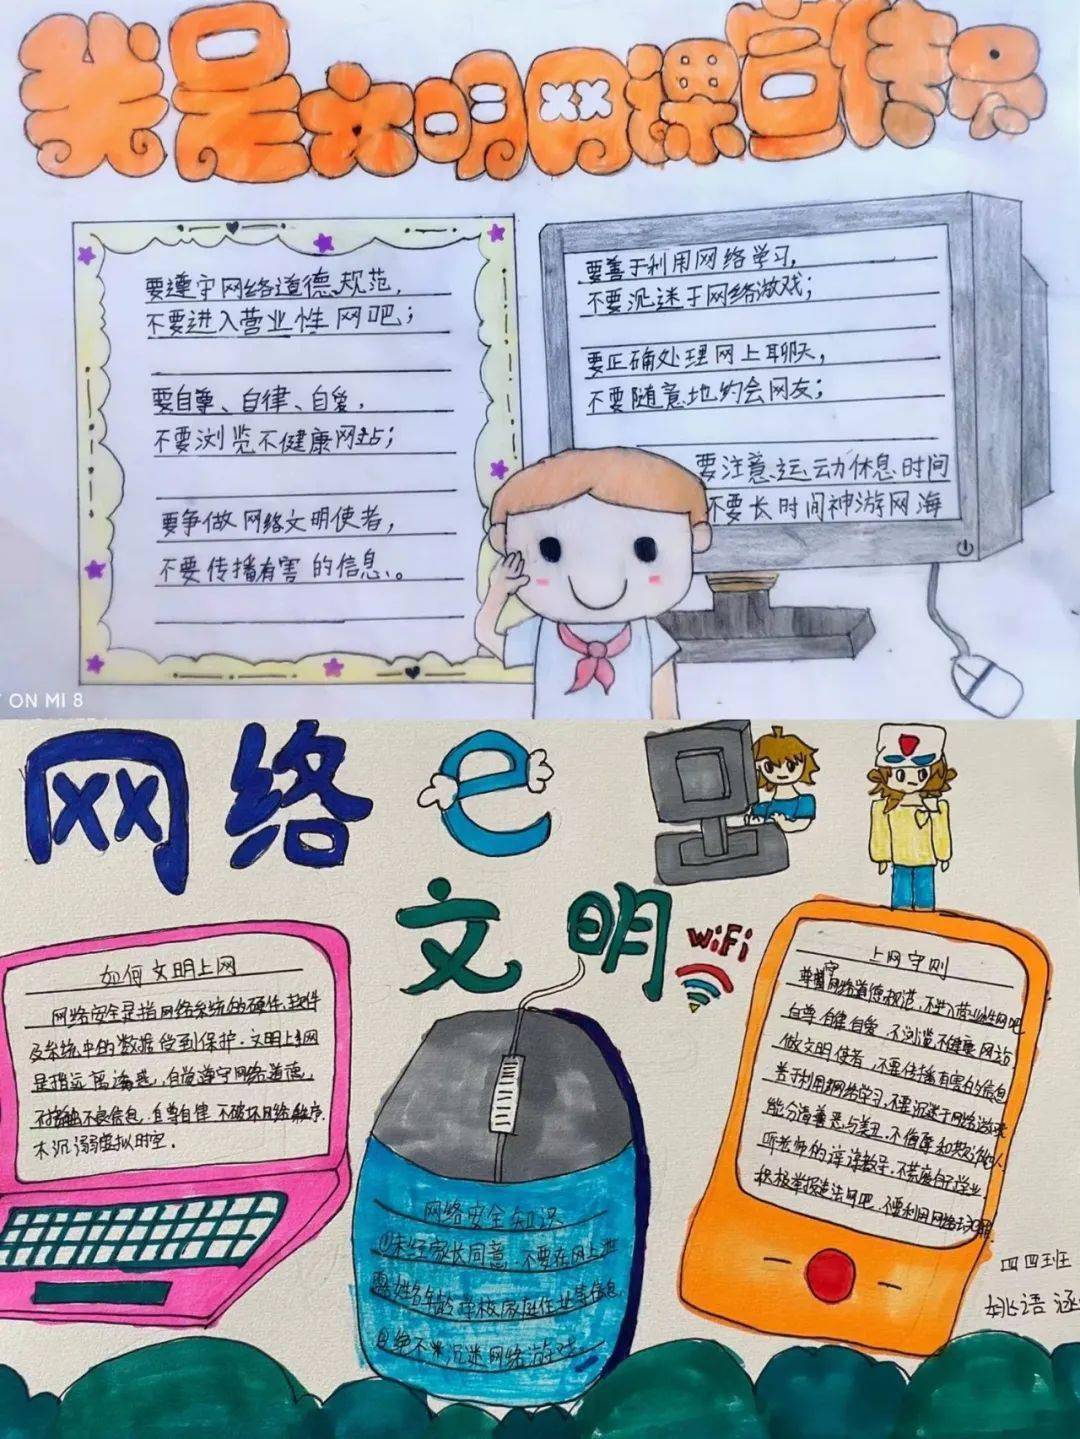 我是文明网课宣传员
要遵守网络道德规范，
不要进入营业性网吧；
要自尊、自律、自爱，
不要浏览不健康网站；
要争做网络文明使者，
不要传播有害的信息。
要善于利用网络学习，
不要沉迷于网络游戏；
要正确处理网上聊天，
不要随意地约会网友；
要注意运动休息时间
不要长时间神游网海
ON MI 8
网络
e
文明
WiFi
如何文明上网
网络安全是指网络系统的硬件、软件
及系统中的数据受到保护。文明上网
是指远离海恶，自觉遵守网络道德，
不接触不良信息，自尊自律，不破坏网络秩序，
不沉溺虚拟时空。
网络安全知识
①未经家长同意，不要在网上泄
露姓名年龄学校家庭住址等信息
②绝不沉迷网络游戏。
上网守则
遵守网络道德规范，不进入营业性网吧
自尊自律自爱，不浏览不健康网站
做文明使者，不要传播有害的信息
善于利用网络学习，不要沉迷于网络游戏
能分清善恶与美丑，不侮辱和欺诈他人
听老师的谆谆教导，不荒废自己学业，
积极举报违法网吧，不要利用网络去
四四班
姚语涵